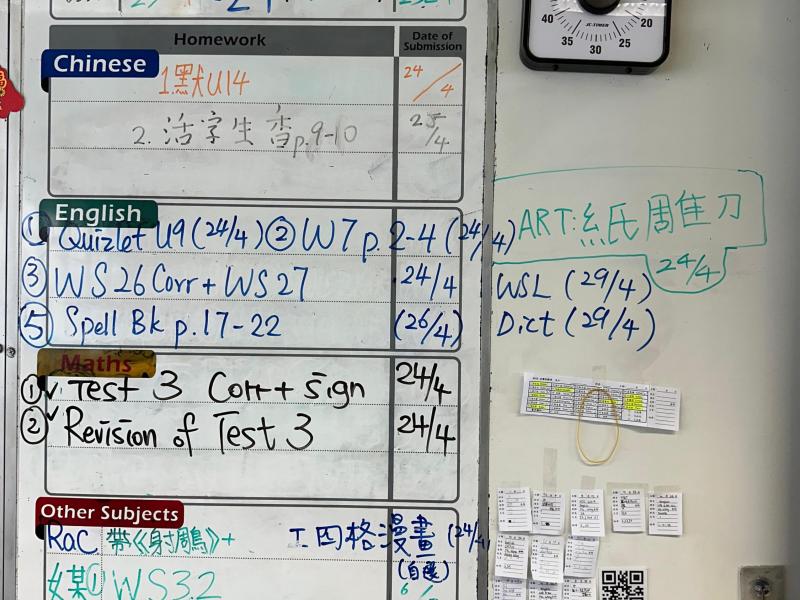 40 20
35 30 25
JC-TIMER
Homework Date of Submission
Chinese
1.默U14 24/4
2. 活字生香p.9-10 25/4
English
① Quizlet U9 (24/4) ② W7 p. 2-4 (24/4)
③ WS 26 Corr + WS 27 24/4
⑤ Spell Bk p. 17-22 (26/4)
ART: 紙 雕刀
24/4
WSL (29/4)
Dict (29/4)
Maths
① ✓ Test 3 Corr + sign 24/4
② ✓ Revision of Test 3 24/4
Other Subjects
RoC 帶《射鵰》+ 四格漫畫 (24/4)
(自選)
① WS3.2 6/